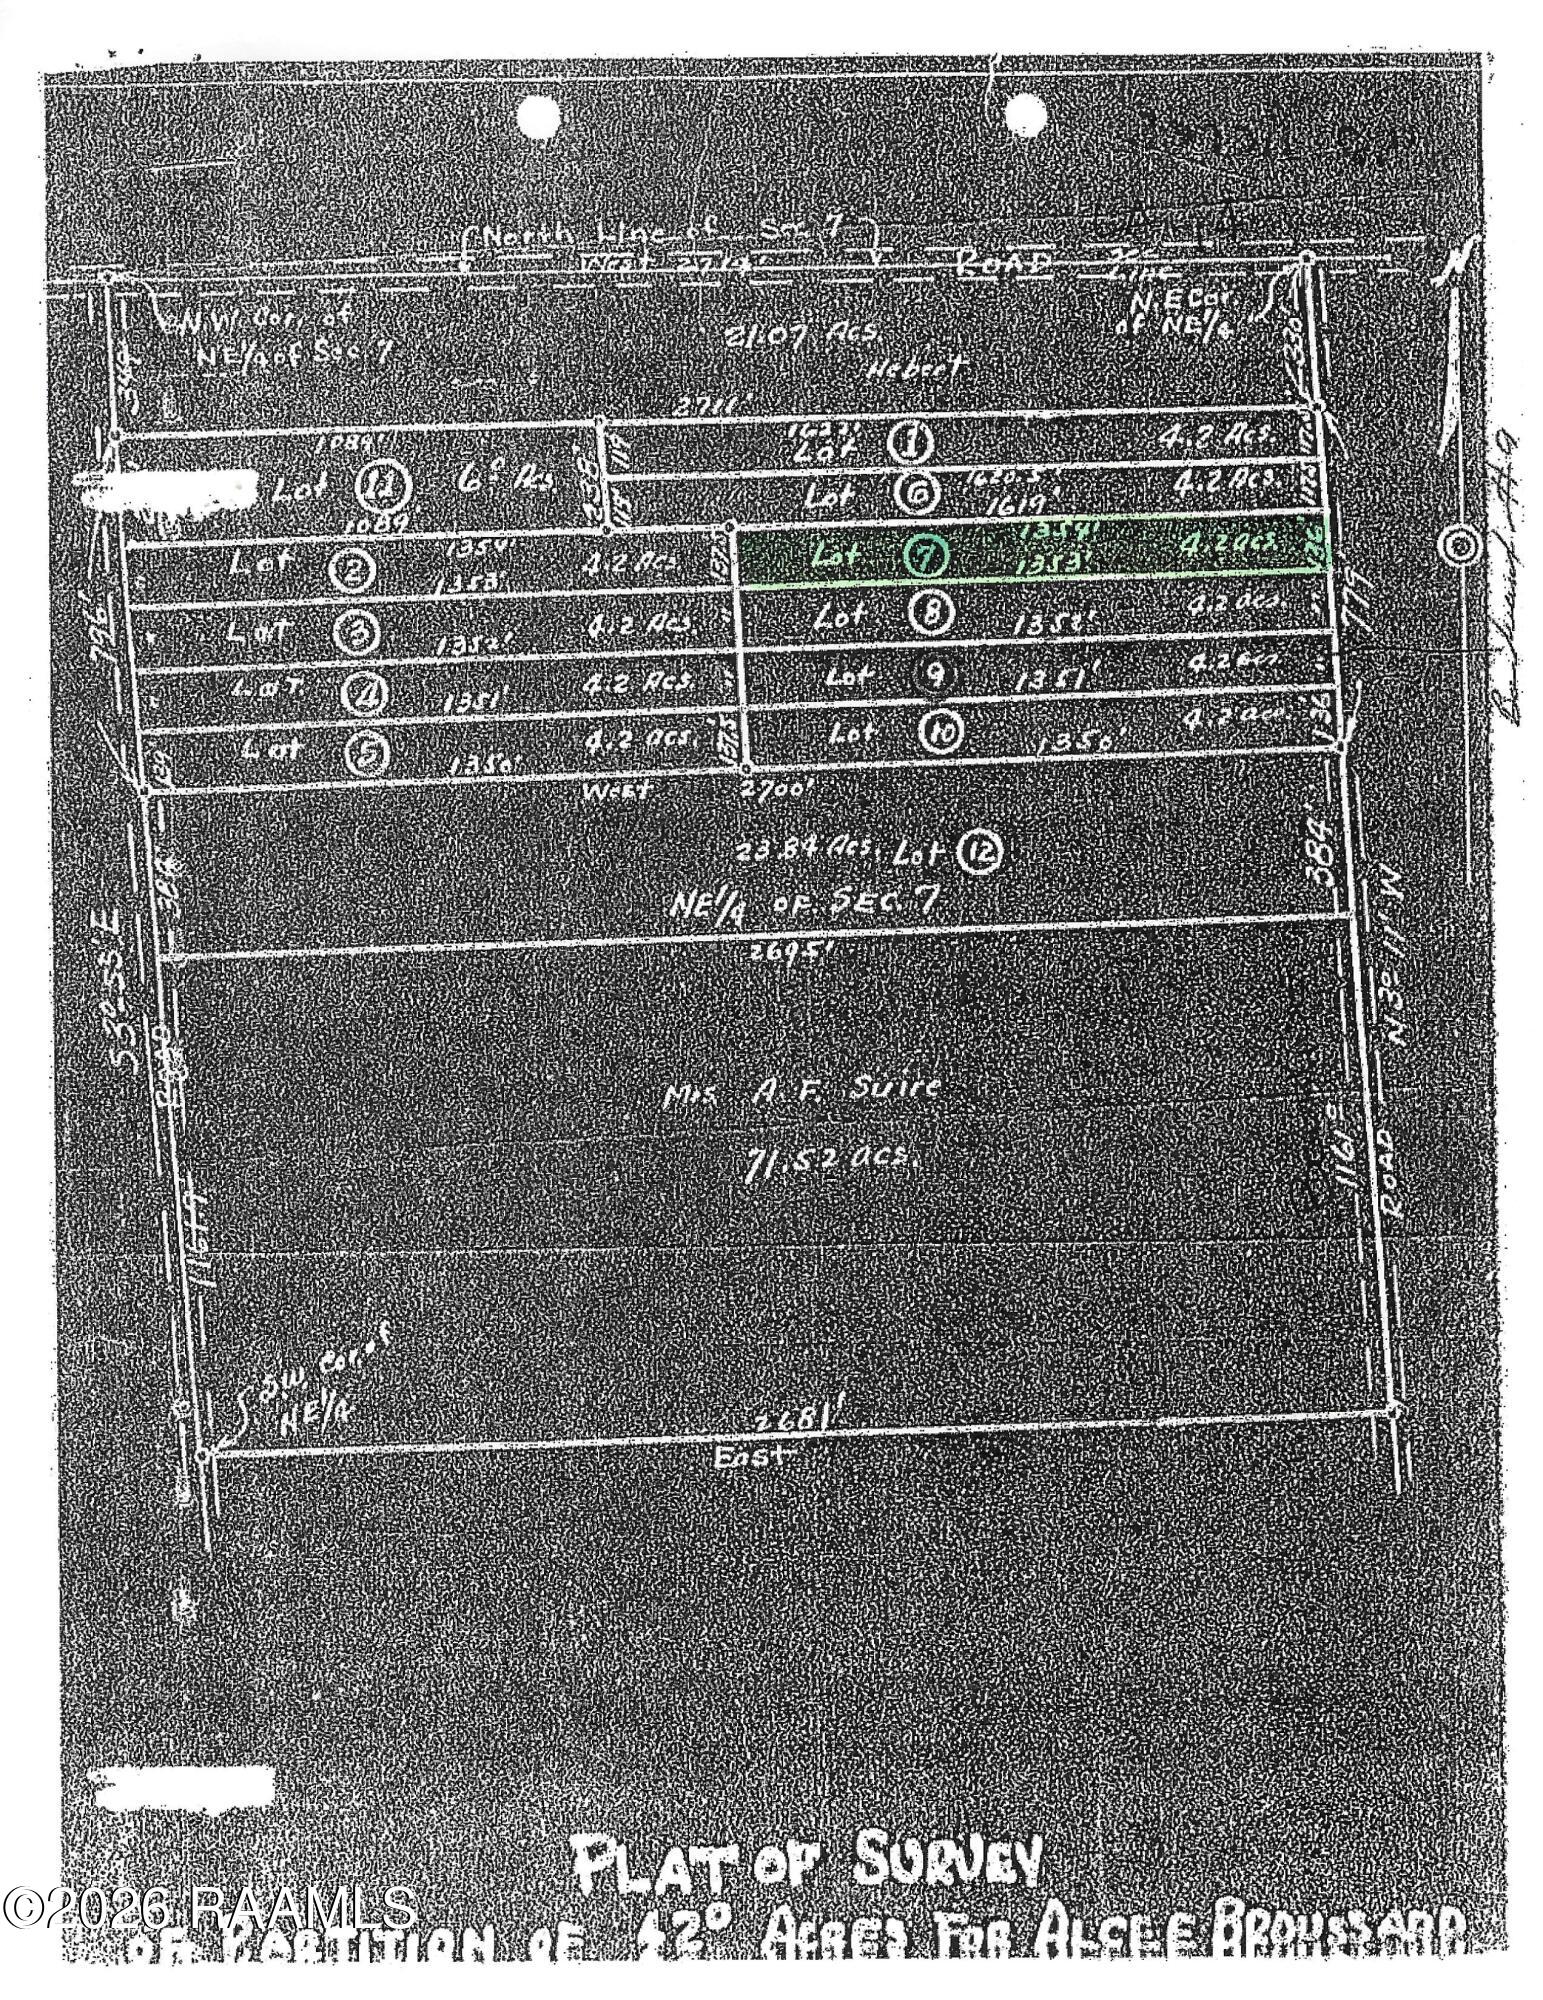 North Line of Sec 7
ROAD
N.W. Cor. of
NE 1/4 of Sec. 7
N.E Cor.
of NE 1/4
330'
349
21.07 Acs.
Hebert
2711'
1089'
1623'
Lot 1 4.2 Acs.
Lot 11 6⁰ Acs.
238'
119
Lot 6 1620.5' 4.2 Acs.
1619'
1089
Lot 2 1354' 4.2 Acs
1353'
Lot 7 1354' 4.2 acs
1353'
Lot 3 1352' 4.2 Acs
Lot 8 1352' 4.2 acs.
Lot 4 1351' 4.2 Acs
Lot 9 1351' 4.2 acs.
Lot 5 1350' 4.2 acs.
Lot 10 1350' 4.2 acs.
136
796'
779
West 2700'
23.84 Acs. Lot 12
NE 1/4 OF SEC. 7
384'
384
2695'
S3º-55'E
N3º 11' W
ROAD
ROAD
Mrs A. F. Suire
71.52 acs.
1161⁰
1164
S.W. Cor. of
NE 1/4
2681'
East
N
PLAT OF SURVEY
OF PARTITION OF 42⁰ ACRES FOR ALCEE BROUSSARD
©2026 RAAMLS